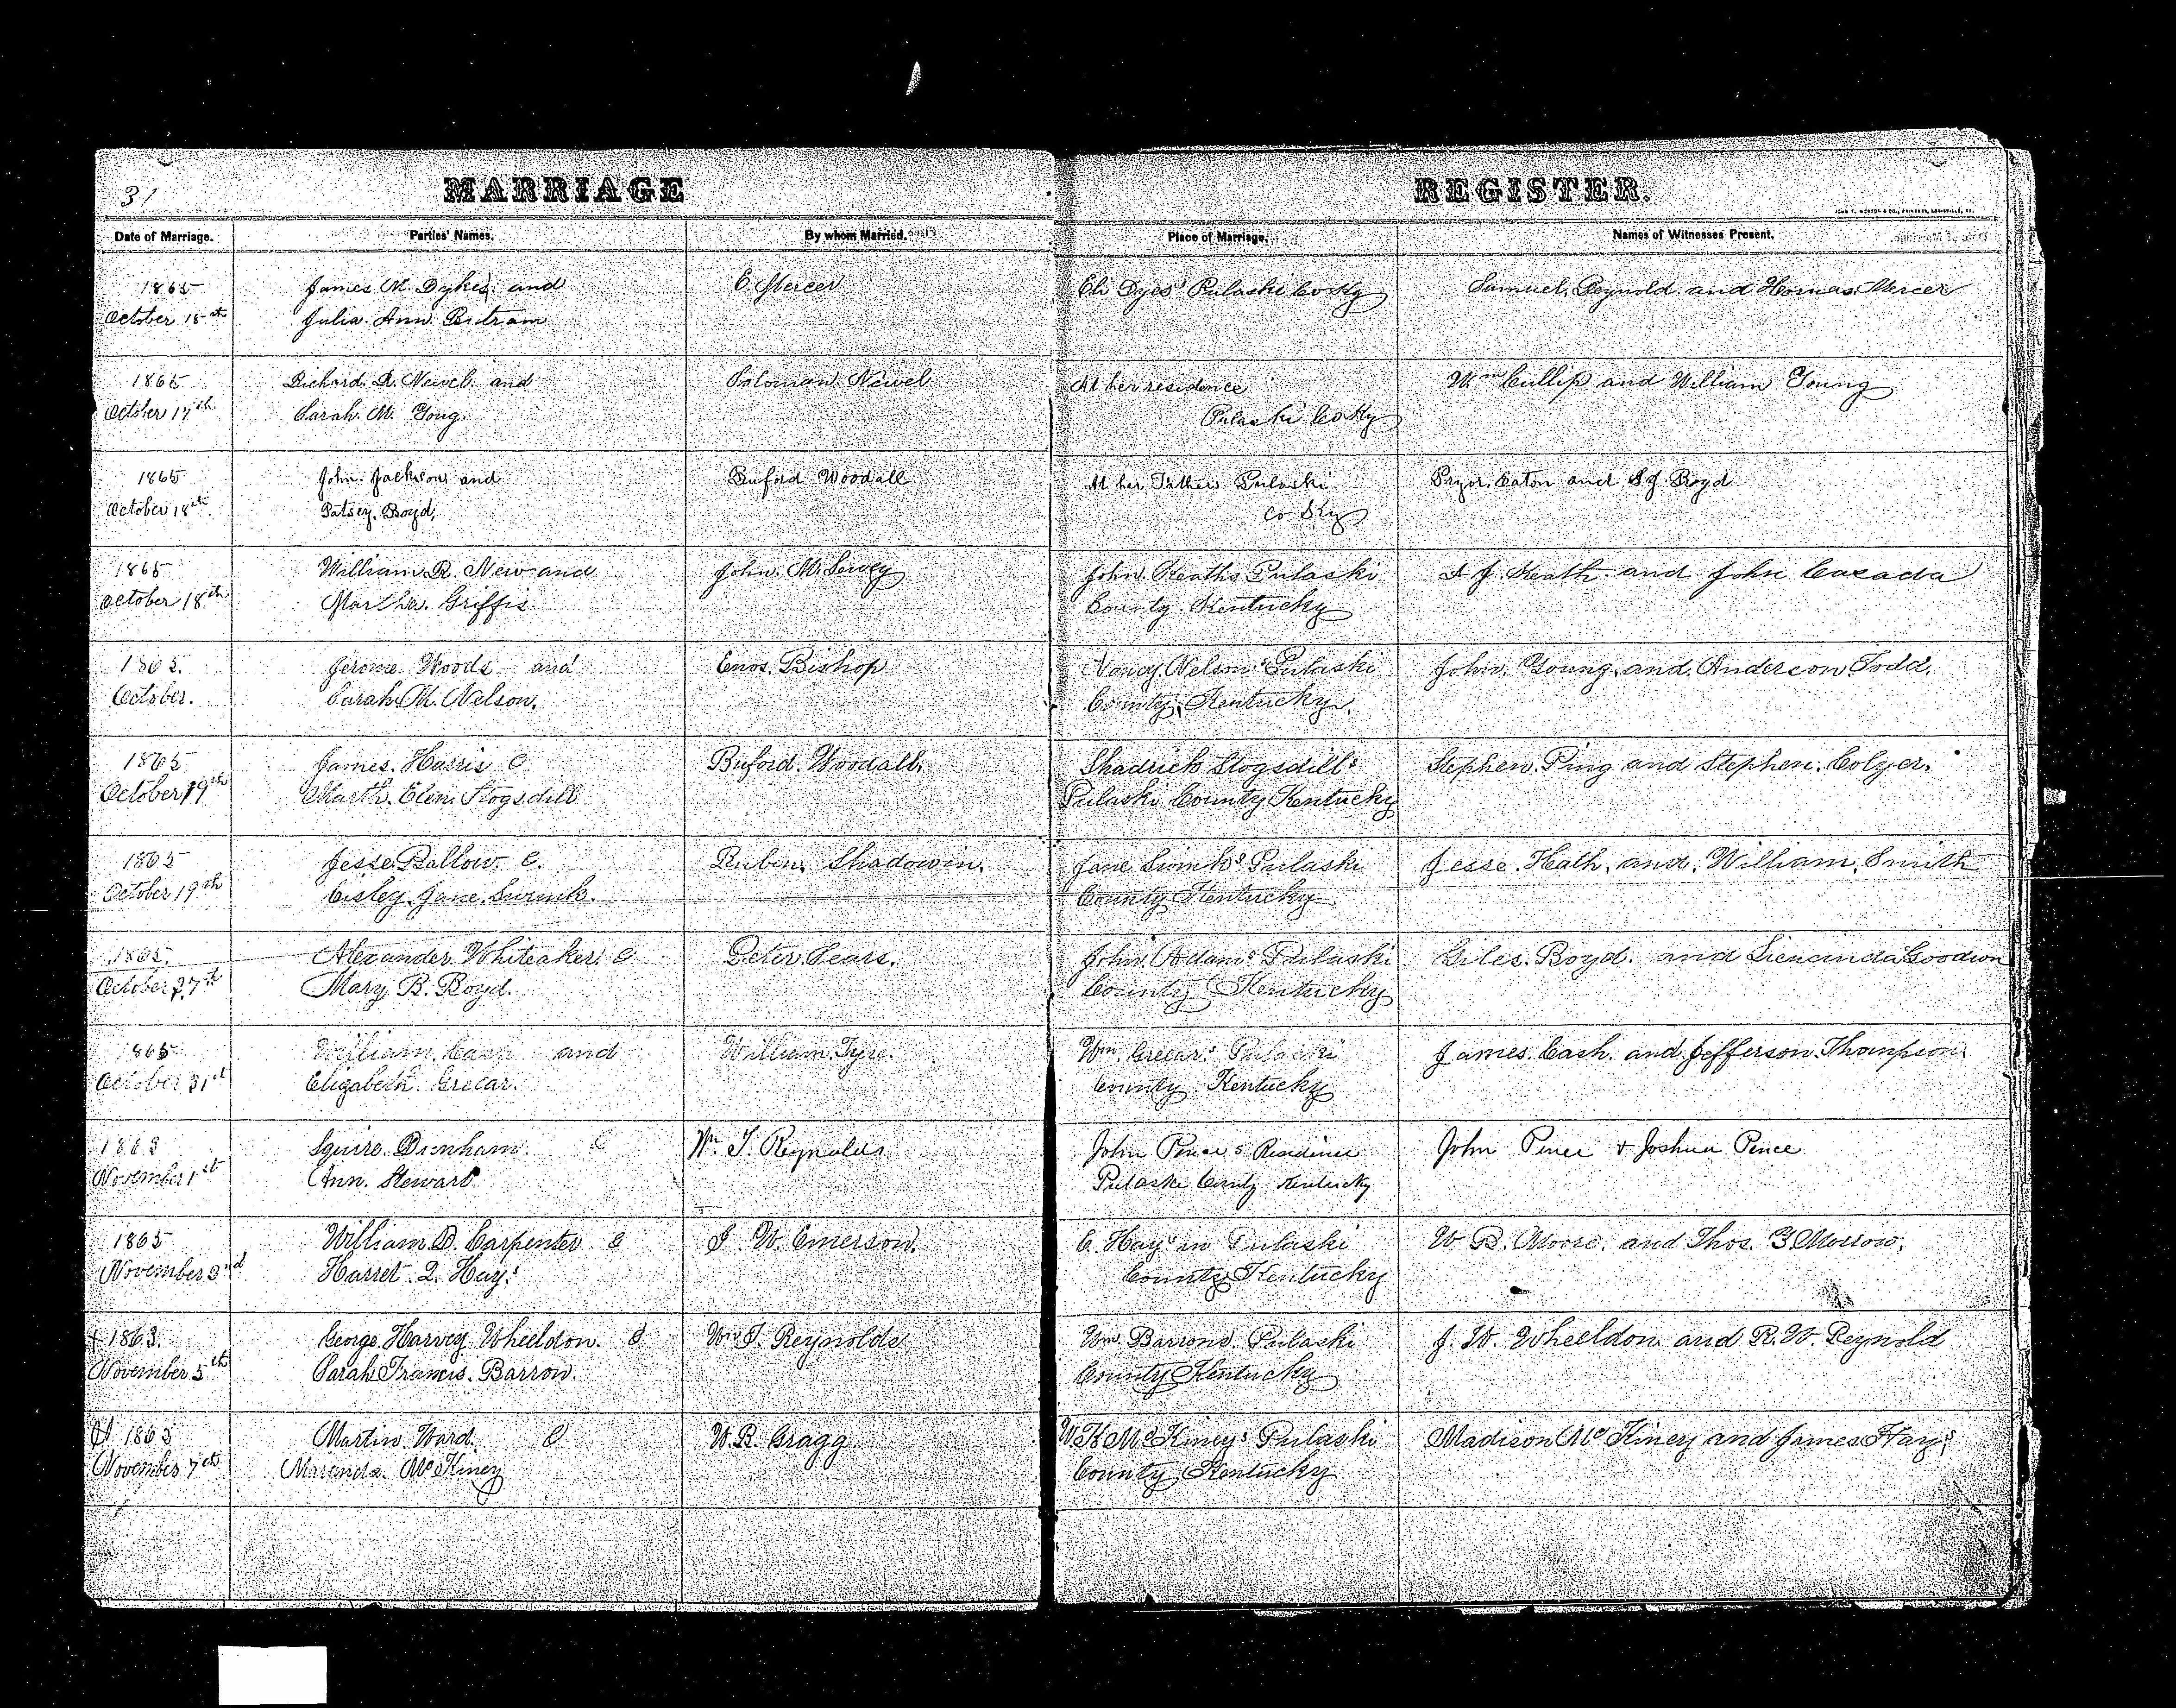 31
MARRIAGE REGISTER.
JOHN P. MORTON & CO., PRINTERS, LOUISVILLE, KY.
Date of Marriage. Parties' Names. By whom Married. Place of Marriage. Names of Witnesses Present.
1865 James M. Dykes and E Mercer Eli Dyes' Pulaski Co Ky Samuel Reynold and Thomas Mercer
October 15th Julia Ann Butram
1865 Richard R. Newel and Soloman Newel At her residence Wm Cullip and William Young
October 17th Sarah M. Yong. Pulaski Co Ky
1865 John Jackson and Buford Woodall At her Fathers Pulaski Pryor Eaton and S J Boyd
October 18th Patsey Boyd, Co Ky
1865 William R. New and John M. Sewey John Keaths Pulaski A J. Keath and John Casada
October 18th Martha Griffis County Kentucky
1865. Jerome Woods and Enos Bishop Nancy Nelson's Pulaski John Young and Anderson Todd.
October. Sarah M. Nelson. County Kentucky.
1865 James Harris & Buford Woodall. Shadrick Stogsdill's Stephen Ping and Stephen Colyer.
October 19th Marth Elen Stogsdill Pulaski County Kentucky
1865 Jesse Ballow & Rubin Shadowin. Jane Swink's Pulaski Jesse Hath and William Smith
October 19th Cisley Jane Swink. County Kentucky
1865. Alexander Whiteaker & Peter Sears. John Adam's Pulaski Giles Boyd and Goodson
October 27th Mary B. Boyd. County Kentucky
1865 William Cash and William Tyre. Wm Grecar's Pulaski James Cash and Jefferson Thompson
October 31st Elizabeth Grecar. County Kentucky
1863 Squire Dunham & Wm T. Reynolds John Pence's Residence John Pence & Joshua Pence
November 1st Ann Steward Pulaski County Kentucky
1865 William D. Carpenter & J. W. Emerson. C. Hay's in Pulaski W B. Moore and Thos. Z Morrow.
November 3rd Harret Q. Hay's County Kentucky
+ 1863. George Harvey Wheeldon & Wm T. Reynolds Wm Barrons Pulaski J. W. Wheeldon and R. W. Reynold
November 5th Sarah Francis Barron. County Kentucky
1863 Martin Ward & W. R. Gragg W K McKiney's Pulaski Madison McKiney and James Hay's
November 7th Maranda McKiney County Kentucky